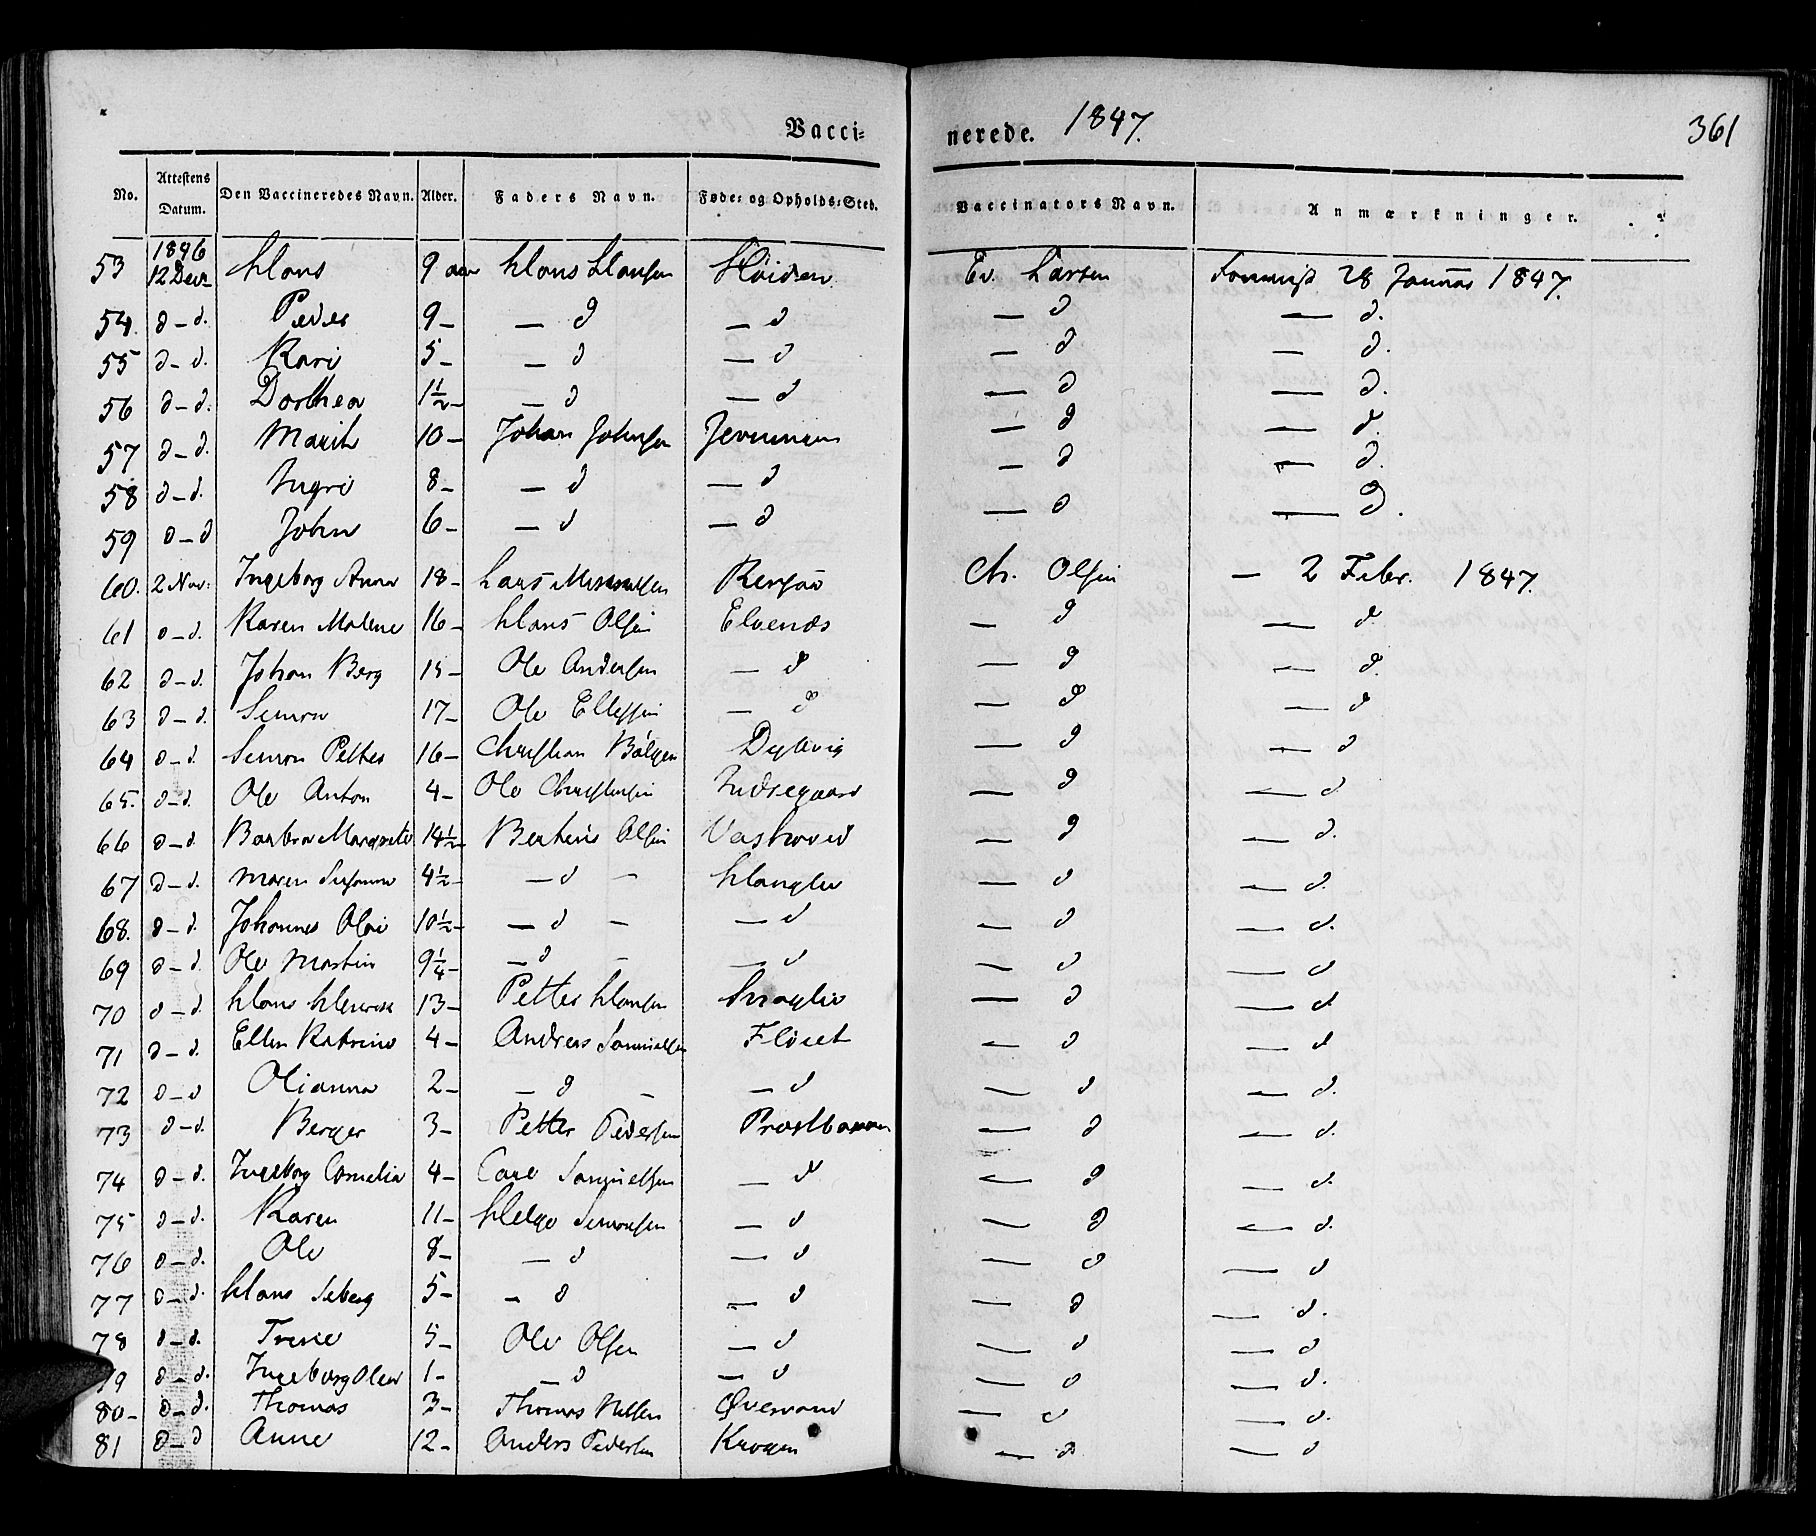 Vacci= nerede. 1847. 361
No. Attestens Datum. Den Vaccineredes Navn. Alder. Faders Navn. Føde= og Opholds=Sted. Vaccinators Navn. Anmærkninger.
53 1846 12 Decr Hans 9 aar Hans Hansen Ev. Larsen 28 Januar 1847.
54. d – d. Peder 9 – — d — d — d — d.
55 d – d. Kari 5 – — d — d — d — d.
56 d – d. Dorthea 1½ – — d — d — d — d.
57 d – d. Marit 10 – Johan Johnsen — d — d.
58 d – d. Ingri 8 – — d — d — d — d.
59 d – d John 6 – — d — d — d — d.
60. 2 Nov: Ingeborg Anna 18 – Lars Ch. Olsen — 2 Febr. 1847.
61 d – d. Karen Malene 16 – Hans Olsen Elvenæs — d — d.
62 d – d. Johan Berg 15 – Ole Andersen — d — d — d.
63 d – d. Simon 17 – Ole Ellefsen — d — d — d
64 d – d. Simon Petter 16 – Christian — d — d
65. d – d. Ole Anton 4 – Ole Christensen Indregaard — d — d.
66 d – d. Barbra Margrete 14½ – Olsen Vashoved — d — d.
67 d – d. Maren Susanna 4½ – — d – Hanglie — d — d.
68. d – d. Johannes Olai 10½ – — d – — d — d — d.
69 d – d. Ole Martin 9¼ – — d – — d — d — d
70 d – d. Hans Henrik 13 – Petter Hansen — d — d.
71 d – d. Ellen Katrine 4 – Andreas Samuelsen Fløiet — d — d
72 d – d Olianna 2 – — d – — d — d — d.
73 d – d. Berger 3 – Petter Pedersen — d — d.
74 d – d. Ingeborg Cornelia 4 – Carl Samuelsen — d — d — d.
75 d – d. Karen 11 – Helge Simonsen — d — d — d.
76 d – d. Ole 8 – — d — d — d — d
77 d – d. Hans Seberg 5 – – d — d — d — d.
78 d – d. Trine 5 – Ole Olsen — d — d — d
79 d – d. Ingeborg Olea 1 – — d — d — d — d.
80 – d – d. Thomas 3 – Thomas Nilsen Øvervand — d — d.
81 d – d Anne 12 – Anders Pedersen Krogen — d — d